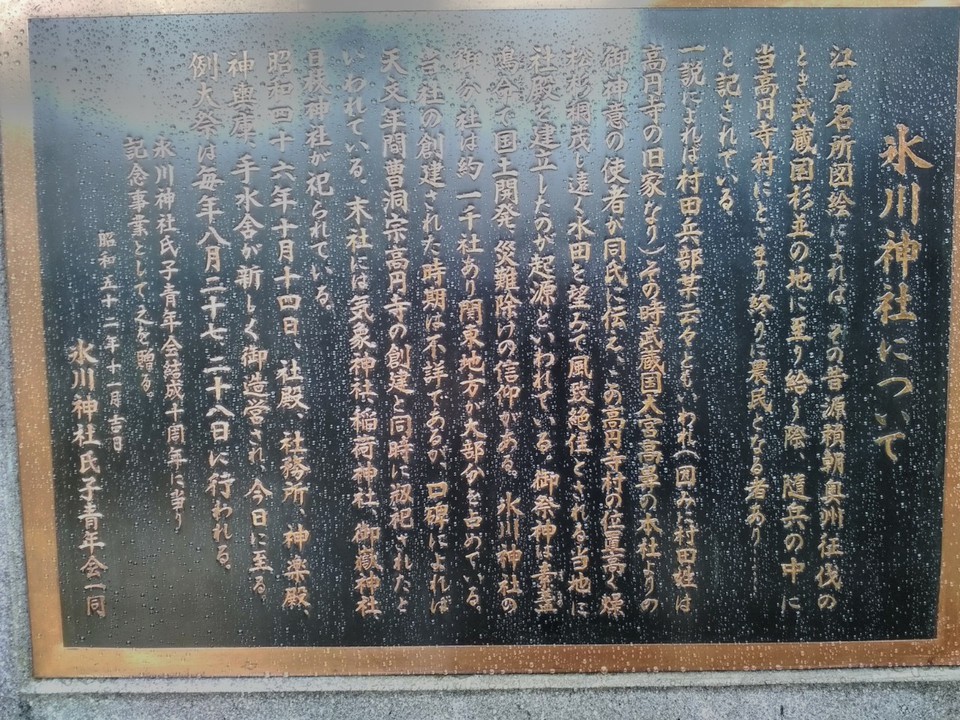 氷川神社について
江戸名所図絵によれば、その昔源頼朝奥州征伐の
とき武蔵国杉並の地に至り給う際、随兵の中に
当高円寺村にとゞまり終りに農民となる者あり
と記されている。
一説によれば村田兵部某云々ともいわれ(因みに村田姓は
高円寺の旧家なり)その時武蔵国大宮高鼻の本社よりの
御神意の使者が同氏に伝え、この高円寺村の位置高く燥
松杉梱茂し遠く水田を望みて風致絶佳とされる当地に
社殿を建立したのが起源といわれている。御祭神は素盞
鳴命で国土開発、災難除けの信仰がある。氷川神社の
御分社は約一千社あり関東地方が大部分を占めている。
当社の創建された時期は不詳であるが、口碑によれば
天文年間曹洞宗高円寺の創建と同時に祀祀されたと
いわれている。末社には気象神社、稲荷神社、御嶽神社、
日枝神社が祀られている。
昭和四十六年十月十四日、社殿、社務所、神楽殿、
神輿庫、手水舎が新しく御造営され、今日に至る
例大祭は毎年八月二十七、二十八日に行われる。
氷川神社氏子青年会結成十周年に当り
記念事業として之を贈る。
昭和五十二年十一月吉日
氷川神社氏子青年会一同